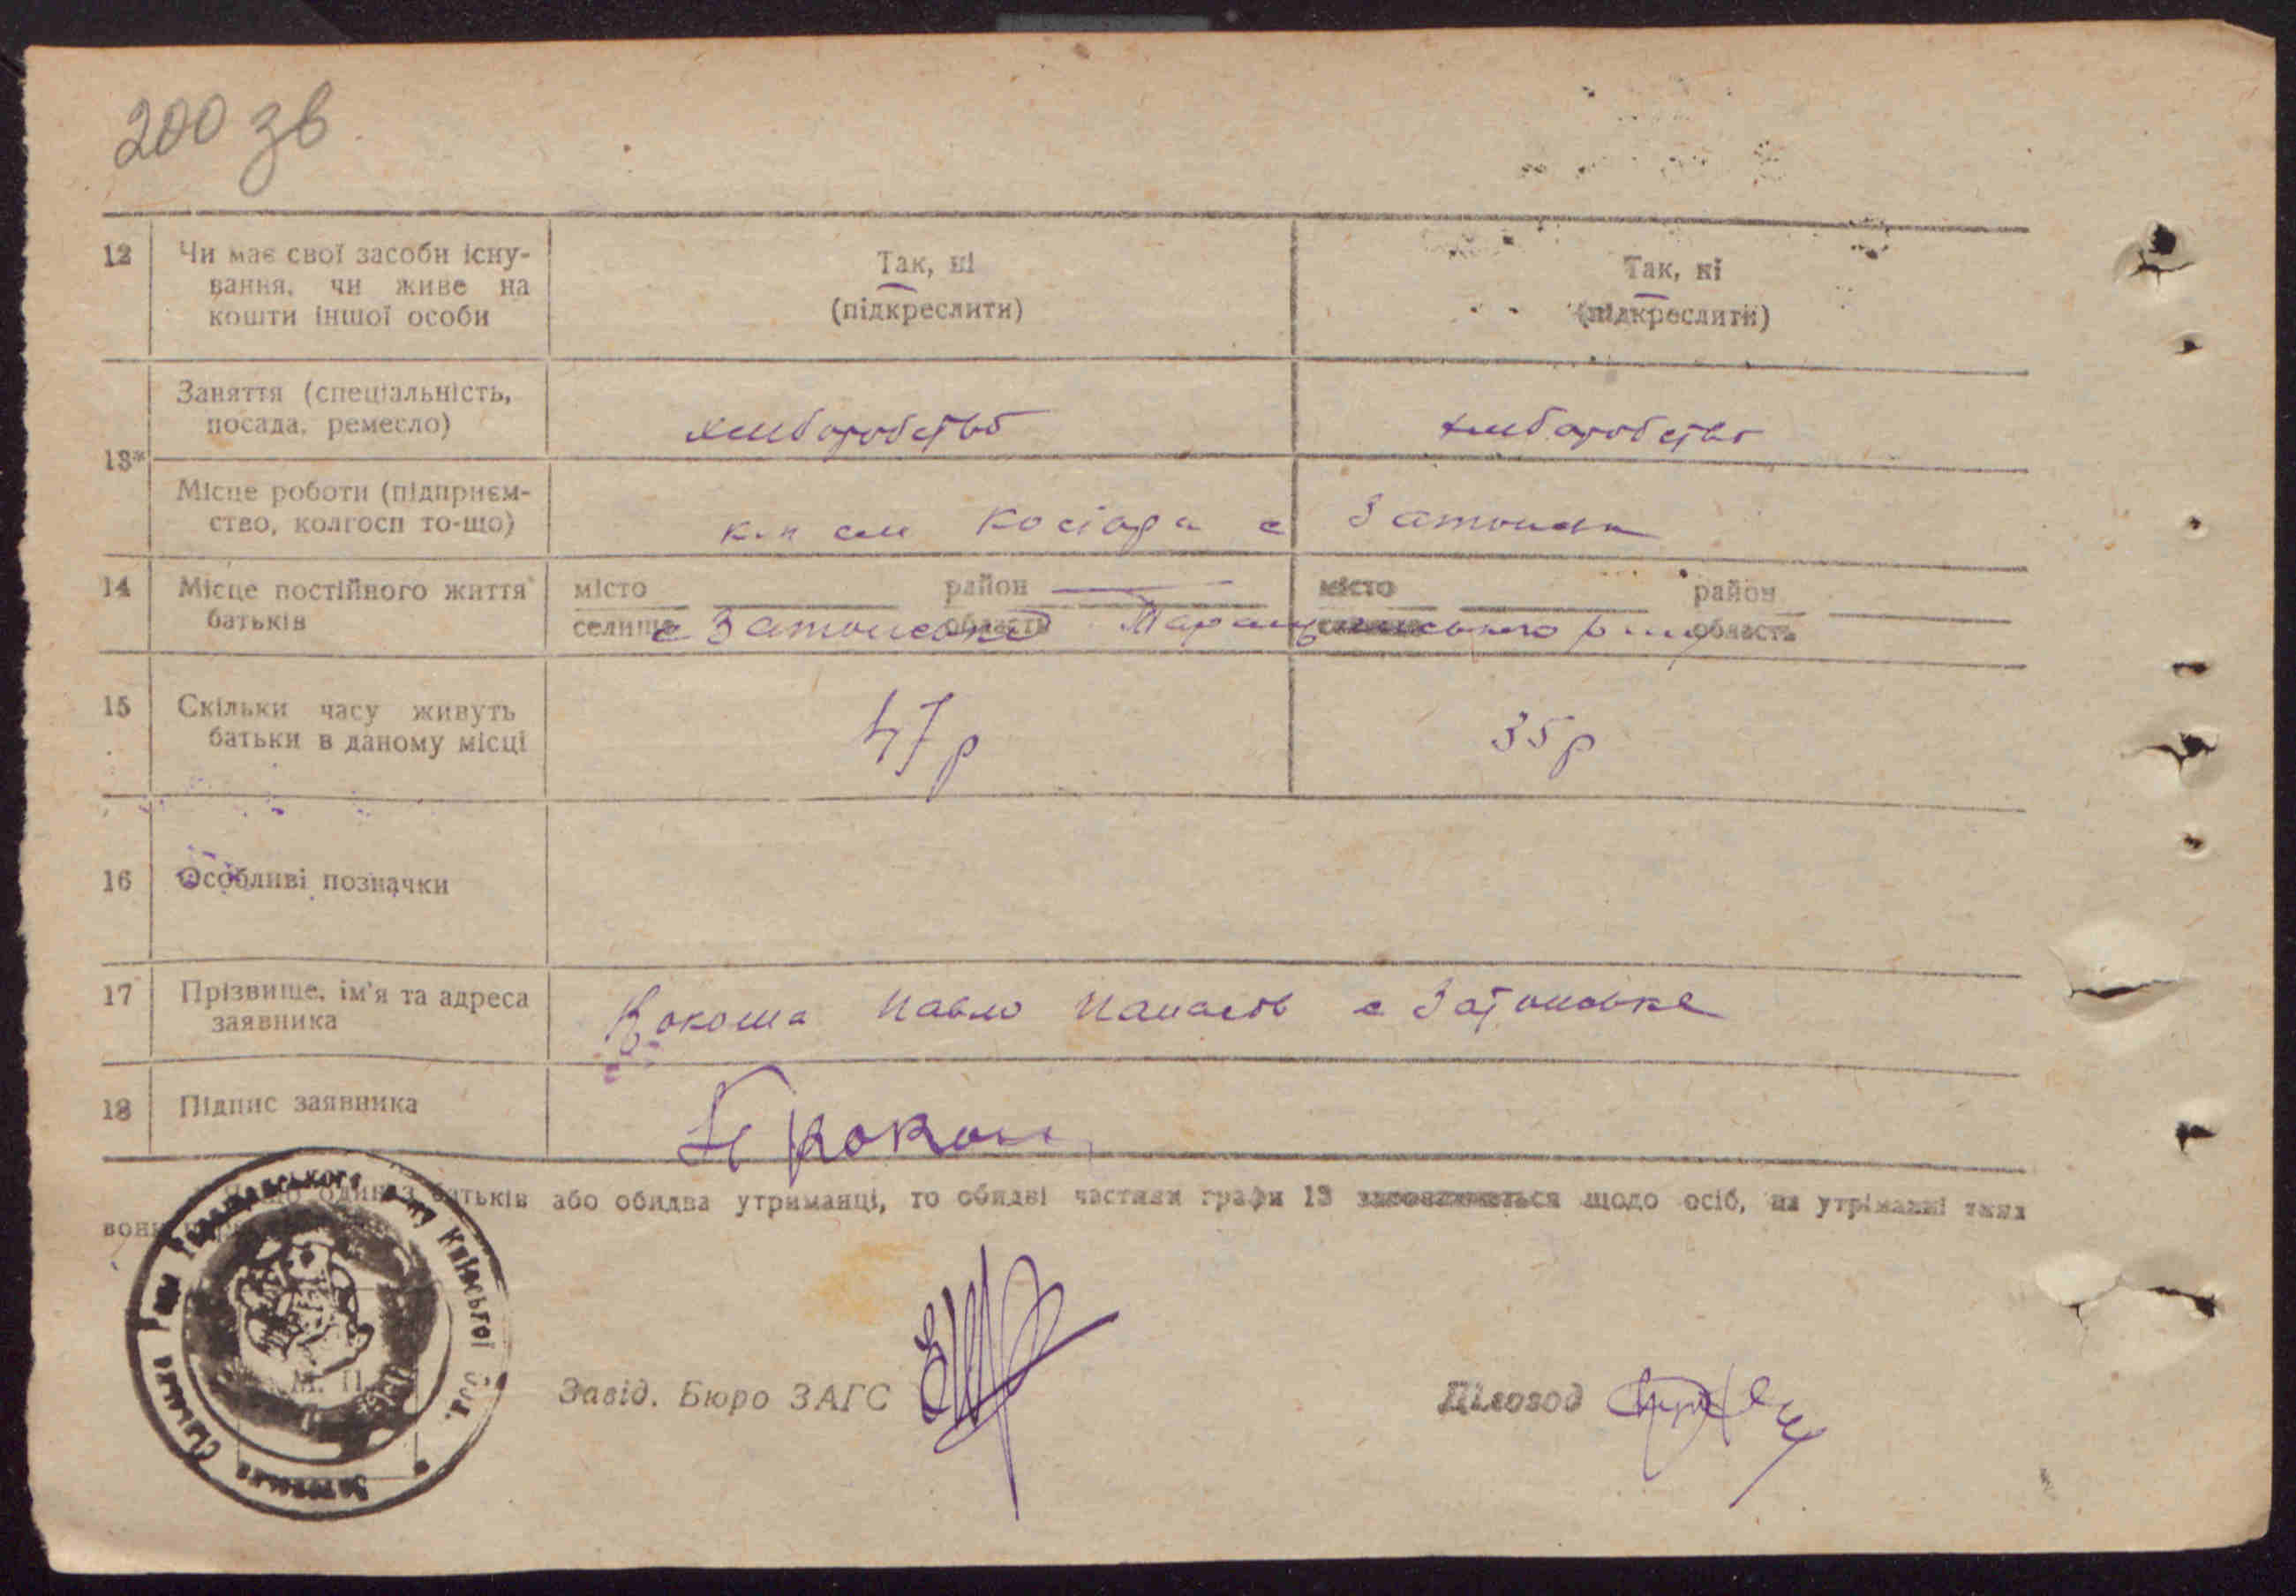 200 зв
12 Чи має свої засоби існу-
вання, чи живе на
кошти іншої особи
Так, ні
(підкреслити)
Так, ні
(підкреслити)
13*
Заняття (спеціальність,
посада, ремесло)
хліборобство
хліборобство
Місце роботи (підприєм-
ство, колгосп то-що)
к-п ім Косіора с Затонськ
14 Місце постійного життя
батьків
місто район
селище область
місто район
селище область
с Затонська
15 Скільки часу живуть
батьки в даному місці
47р
35р
16 Особливі позначки
17 Прізвище, ім'я та адреса
заявника
Кокоша Павло Панасов с Затонське
18 Підпис заявника
Кокош
один з батьків або обидва утриманці, то обидві частини графи 13 заповнюються щодо осіб, на утріманні яких
вони
Сільська Рада району Київської обл.
М. П.
Завід. Бюро ЗАГС
Діловод